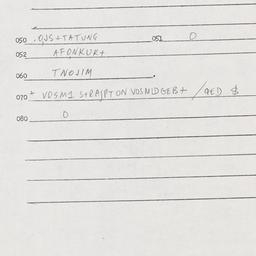 050 .QJS+TATUNG 051 O
052 AFONKUR+
060 TNOJIM
070 + VDSM1 S+RAJPTON VOSMLDGEB+ / QED $
080 O